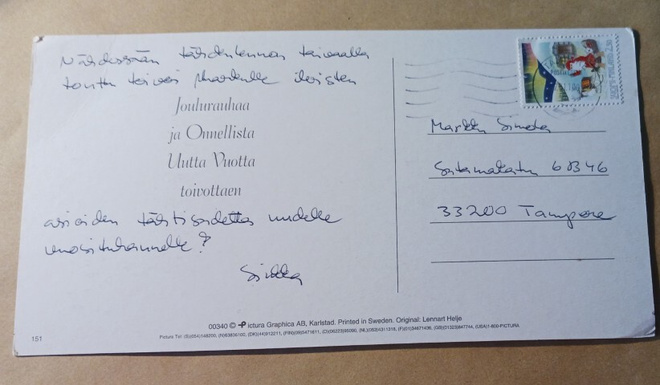 Nähdessään tähdenlennon taivaalla
tonttu toivoi iloisten
Joulurauhaa
ja Onnellista
Uutta Vuotta
toivottaen
asioiden tähtisadetta uudelle
vuosituhannelle?
Sirkka
Satamakatu 6 B 46
33200 Tampere
00340 © Pictura Graphica AB, Karlstad. Printed in Sweden. Original: Lennart Helje
151